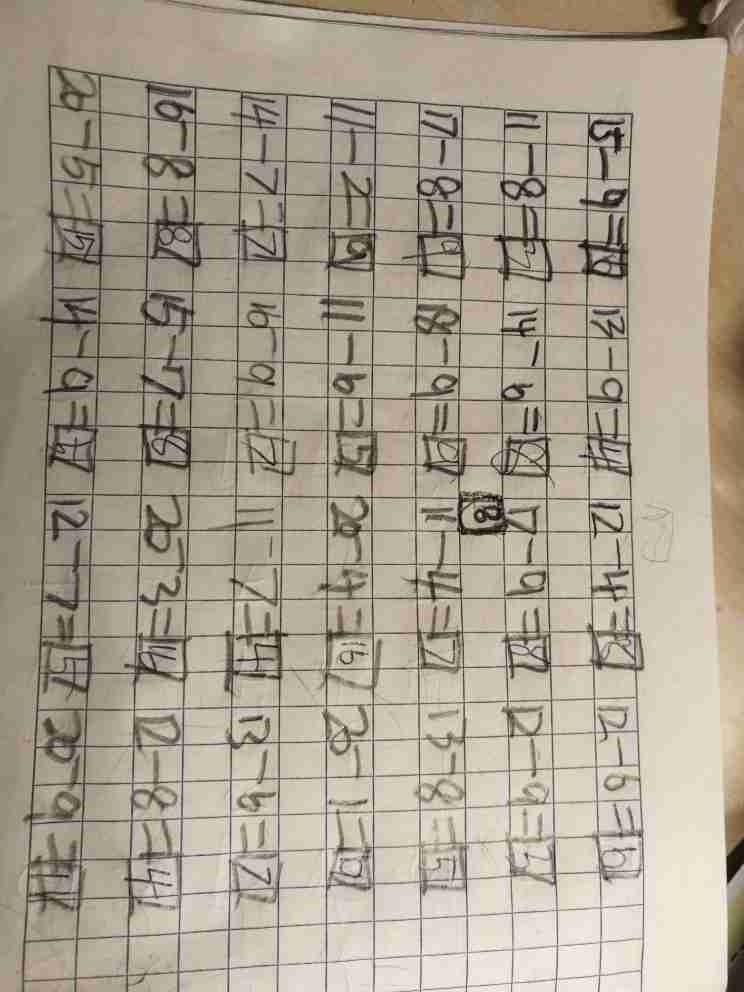 15-9=6 13-9=4 12-4=8 12-6=6
11-8=3 14-6= 17-9=8 12-9=3
8
17-8=9 18-9=9 11-4=7 13-8=5
11-2=9 11-6=5 20-4=16 20-1=19
14-7=7 16-9=7 11-7=4 13-6=7
16-8=8 15-7=8 20-3=14 12-8=4
20-5=15 14-9= 12-7=5 20-9=11